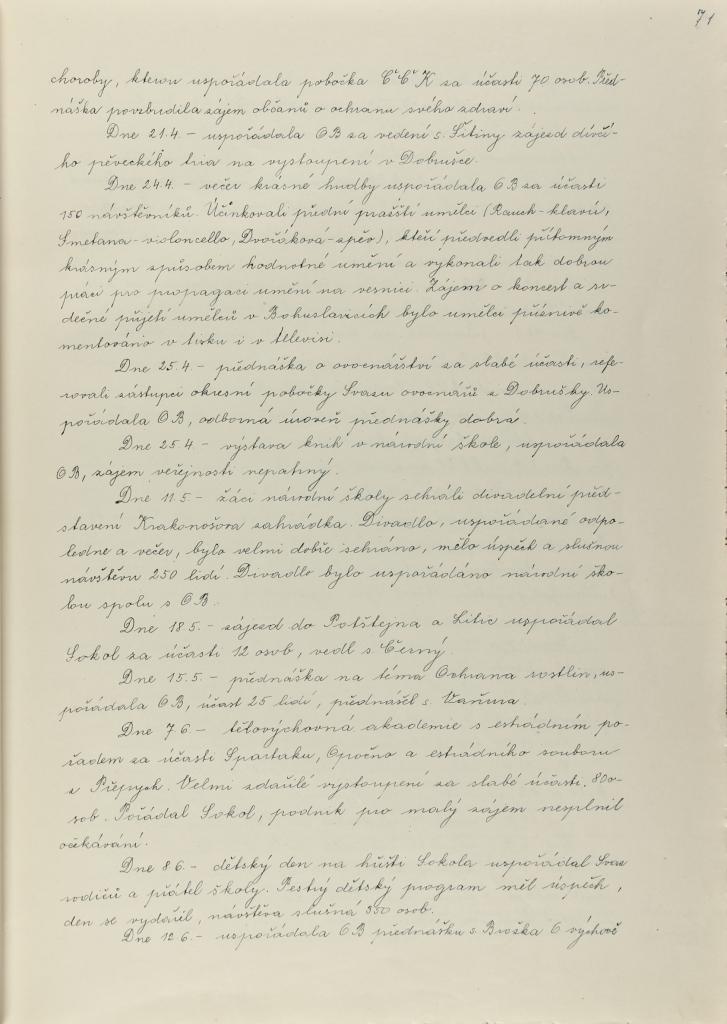 71
choroby, kterou uspořádala pobočka ČČK za účasti 70 osob. Před-
náška povzbudila zájem občanů o ochranu svého zdraví.
Dne 21.4. - uspořádala OB za vedení s. Šitiny zájezd dívčí-
ho pěveckého tria na vystoupení v Dobrušce.
Dne 24.4. - večer krásné hudby uspořádala OB za účasti
150 návštěvníků. Účinkovali přední pražští umělci (Rauch-klavír,
Smetana-violoncello, Dvořáková-zpěv), kteří předvedli přítomným
krásným způsobem hodnotné umění a vykonali tak dobrou
práci pro propagaci umění na vesnici. Zájem o koncert a sr-
dečné přijetí umělců v Bohuslavicích bylo umělci příznivě ko-
mentováno v tisku i v televisi.
Dne 25.4. - přednáška o ovocnářství za slabé účasti, refe-
rovali zástupci okresní pobočky Svazu ovocnářů z Dobrušky. Us-
pořádala OB, odborná úroveň přednášky dobrá.
Dne 25.4. - výstava knih v národní škole, uspořádala
OB, zájem veřejnosti nepatrný.
Dne 11.5. - žáci národní školy sehráli divadelní před-
stavení Krakonošova zahrádka. Divadlo, uspořádané odpo-
ledne a večer, bylo velmi dobře sehráno, mělo úspěch a slušnou
návštěvu 250 lidí. Divadlo bylo uspořádáno národní ško-
lou spolu s OB.
Dne 18.5. - zájezd do Potštejna a Litic uspořádal
Sokol za účasti 12 osob, vedl s. Černý.
Dne 15.5. - přednáška na téma Ochrana rostlin, us-
pořádala OB, účast 25 lidí, přednášel s. Vaňura.
Dne 7.6. - tělovýchovná akademie s estrádním po-
řadem za účasti Spartaku, Opočno a estrádního souboru
z Přepych. Velmi zdařilé vystoupení za slabé účasti. 80 o-
sob. Pořádal Sokol, podnik pro malý zájem nesplnil
očekávání.
Dne 8.6. - dětský den na hřišti Sokola uspořádal Svaz
rodičů a přátel školy. Pestrý dětský program měl úspěch,
den se vydařil, návštěva slušná 350 osob.
Dne 12.6. - uspořádala OB přednášku s. Brožka O výchově